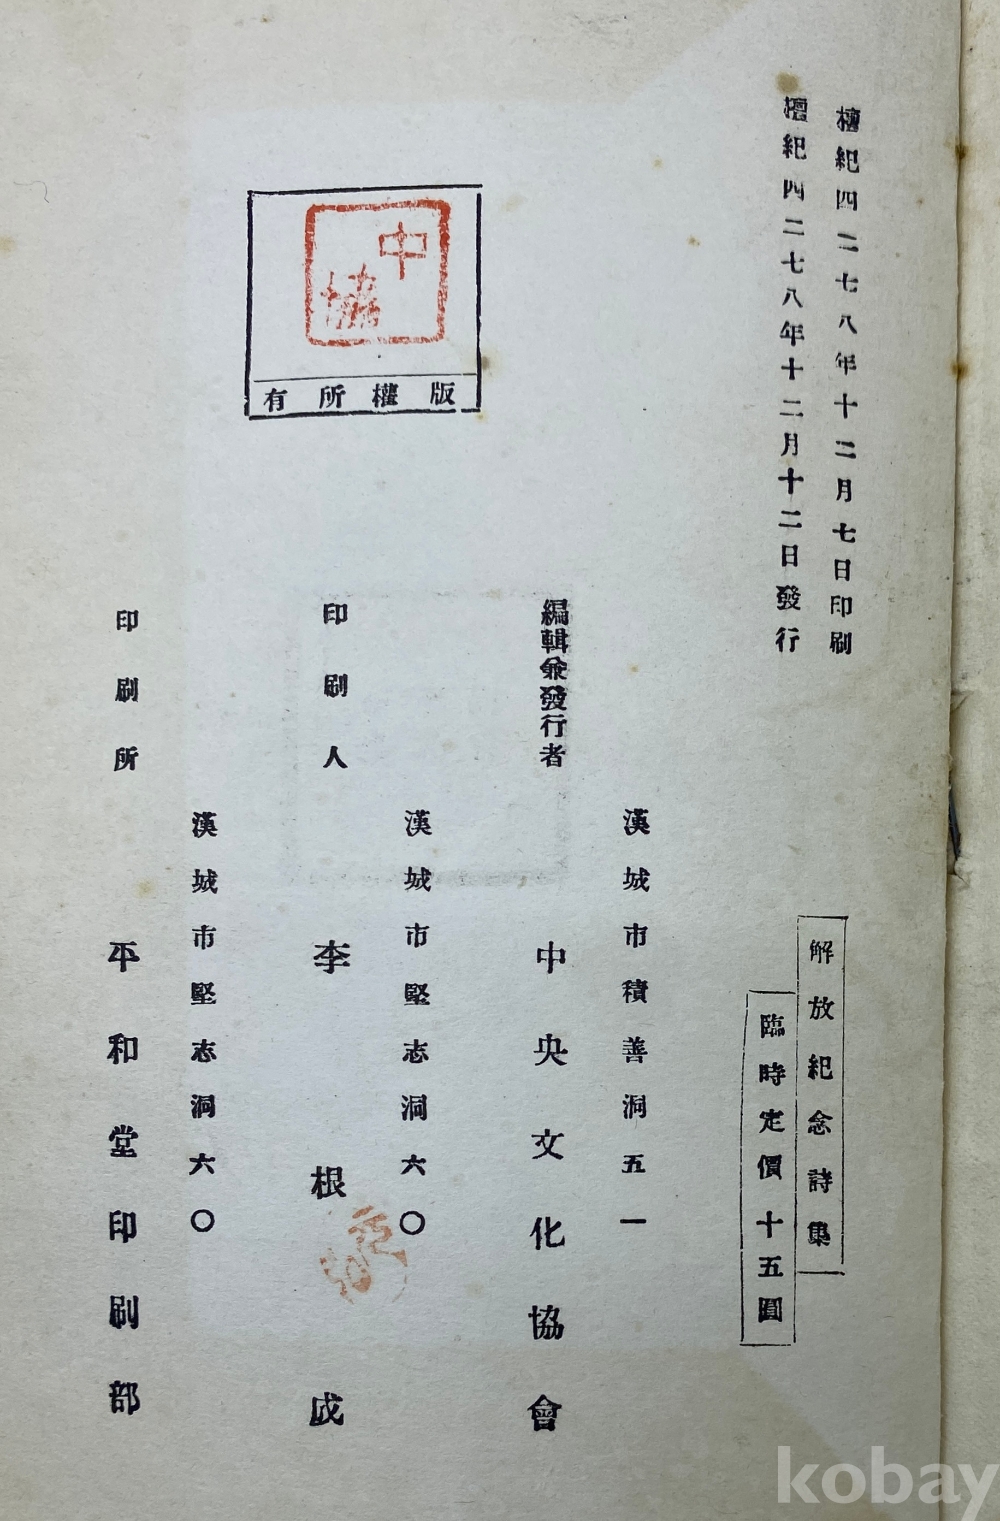 檀紀四二七八年十二月七日印刷
檀紀四二七八年十二月十二日發行
解放紀念詩集
臨時定價十五圓
漢城市積善洞五一
編輯兼發行者
中央文化協會
漢城市堅志洞六〇
印刷人
李根成
漢城市堅志洞六〇
印刷所
平和堂印刷部
中協
版權所有
kobay